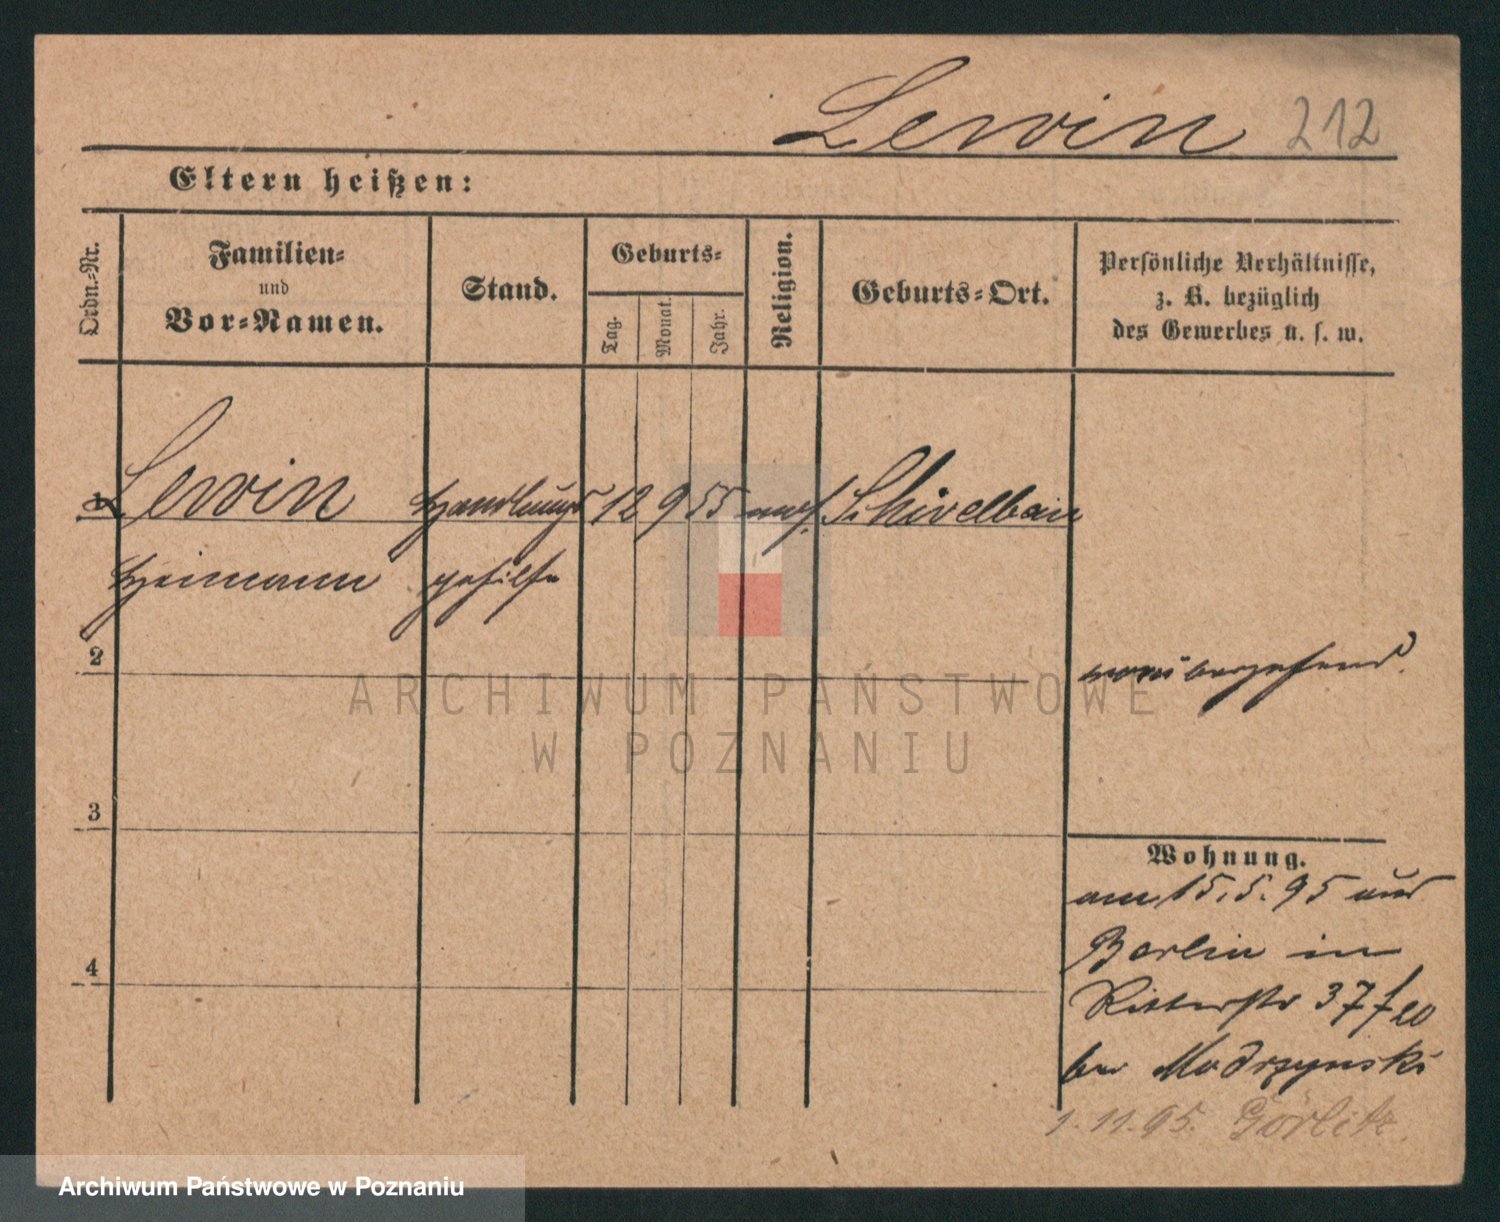 Lewin 212
Eltern heißen:
Ordn.-Nr.
Familien-
und
Vor-Namen.
Stand.
Geburts-
Tag.
Monat.
Jahr.
Religion.
Geburts-Ort.
Persönliche Verhältnisse,
z. B. bezüglich
des Gewerbes u. s. w.
1 Lewin Handlungs 12 9 55 mos. Schivelbein
Heimann gehilfe
2
vorübergehend.
ARCHIWUM PAŃSTWOWE
W POZNANIU
3
Wohnung.
am 15.5.95 aus
4
Berlin in
Ritterstr 37
bei Modrzynski
1.11.95. Görlitz
Archiwum Państwowe w Poznaniu